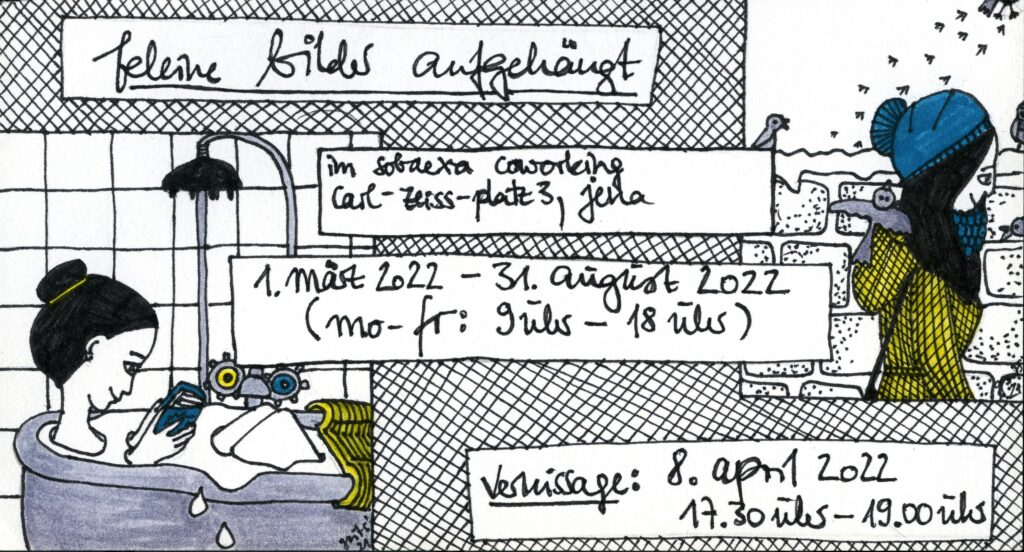 feleine bilder aufgehängt
im sobaexa coworking
carl-zeiss-platz 3, jena
1. märz 2022 – 31. august 2022
(mo-fr: 9 uhr – 18 uhr)
vernissage: 8. april 2022
17.30 uhr – 19.00 uhr